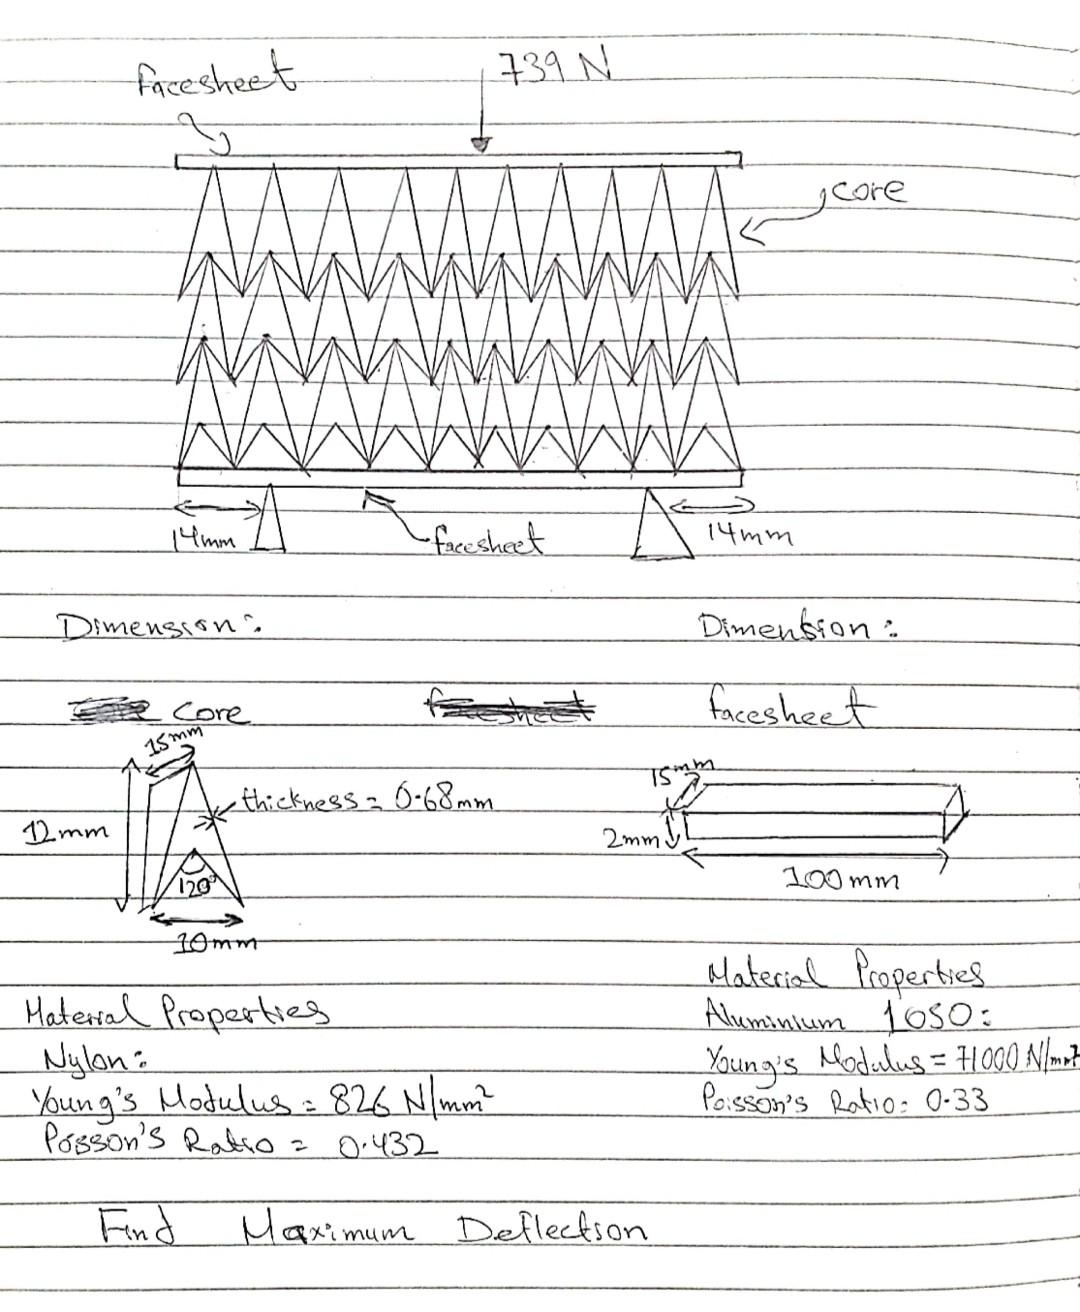 facesheet
739 N
core
14mm
facesheet
14mm
Dimension:
Dimension:
core
facesheet
15mm
thickness = 0.68mm
12mm
120°
10mm
15mm
2mm
100mm
Material Properties
Aluminium 1050:
Young's Modulus = 71000 N/mm²
Poisson's Ratio: 0.33
Material Properties
Nylon:
Young's Modulus = 826 N/mm²
Poisson's Ratio = 0.432
Find Maximum Deflection